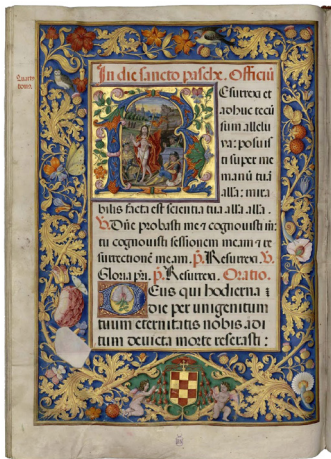 In die sancto pasche. Officiū
Esurrexi et
adhuc tecū
sum allelu
ya: posuis
ti super me
manū tuā
alla: mira
bilis facta est scientia tua alla. alla.
V. Dñe probasti me & cognouisti me:
tu cognouisti sessionem meam & re
surrectionē meam. p̄. Resurrexi. V.
Gloria pr̄i. p̄. Resurrexi. Oratio.
Deus qui hodierna
die per unigenitum
tuum eternitatis nobis adi
tum deuicta morte reserasti: